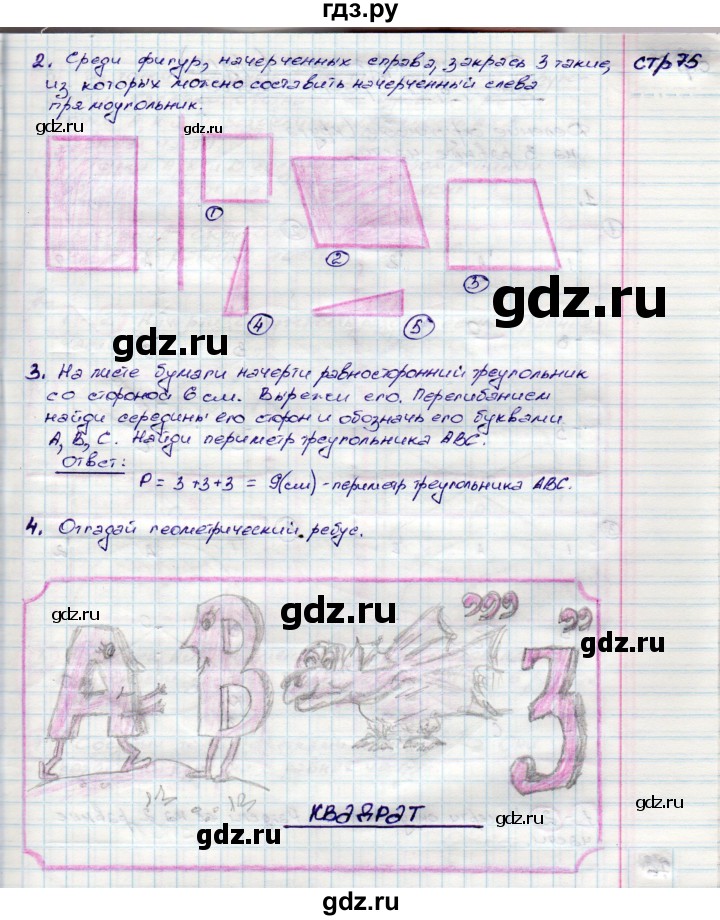 гдз.ру
2. Среди фигур, начерченных справа, закрась 3 такие,
стр 75
из которых можно составить начерченный слева
прямоугольник.
gdz.ru
gdz.ru
1
2
3
gdz.ru
4
5
gdz.ru
3. На листе бумаги начерти равносторонний треугольник
со стороной 6 см. Вырежи его. Перегибанием
найди середины его сторон и обозначь его буквами
A, B, C. Найди периметр треугольника ABC.
Ответ:
P = 3+3+3 = 9(см) - периметр треугольника ABC.
4. Отгадай геометрический ребус.
gdz.ru
gdz.ru
,,,
,,
gdz.ru
А
В
3
gdz.ru
КВАДРАТ
gdz.ru
gdz.ru